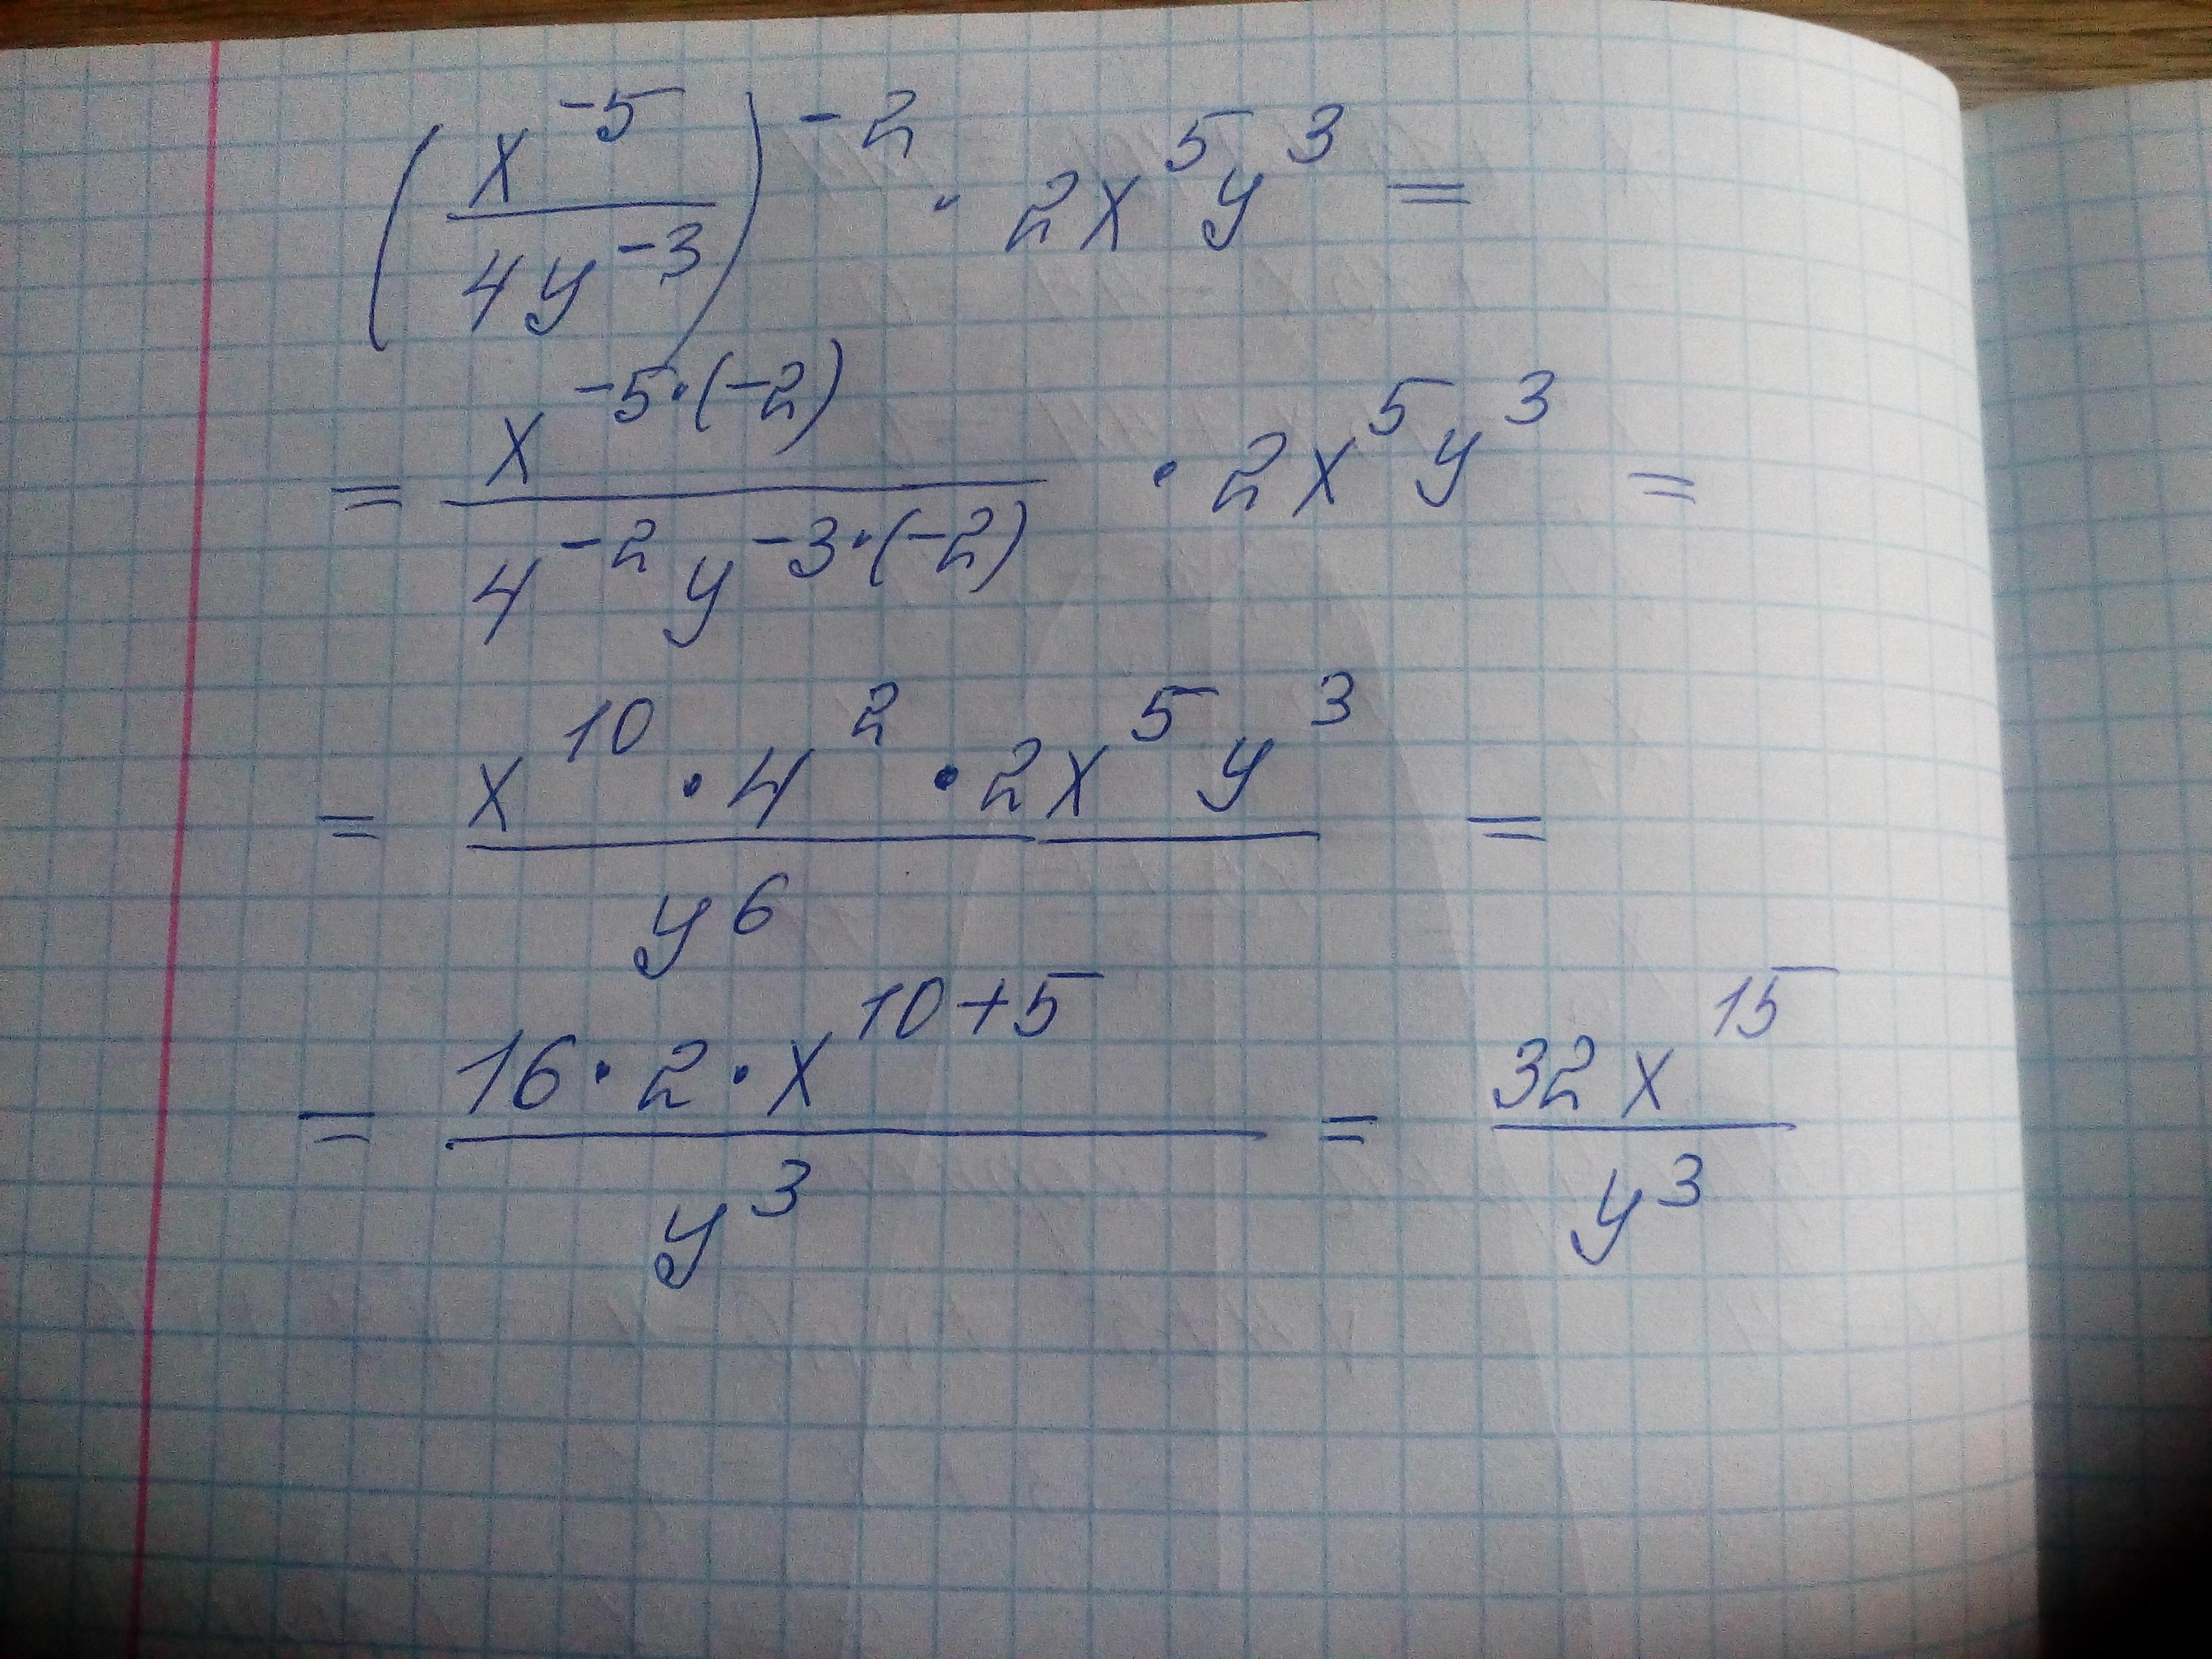 (x^-5 / 4y^-3)^-2 · 2x^5y^3 =
= x^-5·(-2) / 4^-2 y^-3·(-2) · 2x^5y^3 =
= x^10 · 4^2 · 2x^5y^3 / y^6 =
= 16 · 2 · x^10+5 / y^3 = 32x^15 / y^3